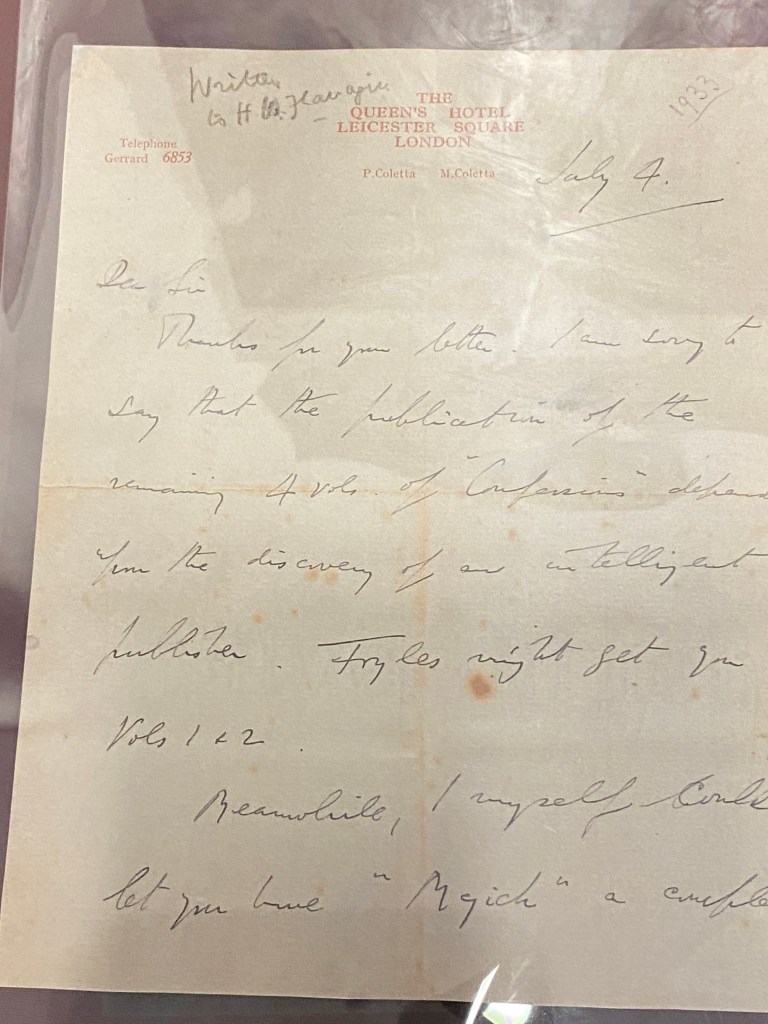 Written
to H.
1933
THE
QUEEN'S HOTEL
LEICESTER SQUARE
LONDON
Telephone
Gerrard 6853
P.Coletta M.Coletta
July 4.
Dear Sir
Thanks for your letter. I am sorry to
say that the publication of the
remaining 4 vols. of "Confessions" depend
upon the discovery of an intelligent
publisher. Foyles might get you
Vols 1 & 2.
Meanwhile, I myself could
let you have "Magick" a comple